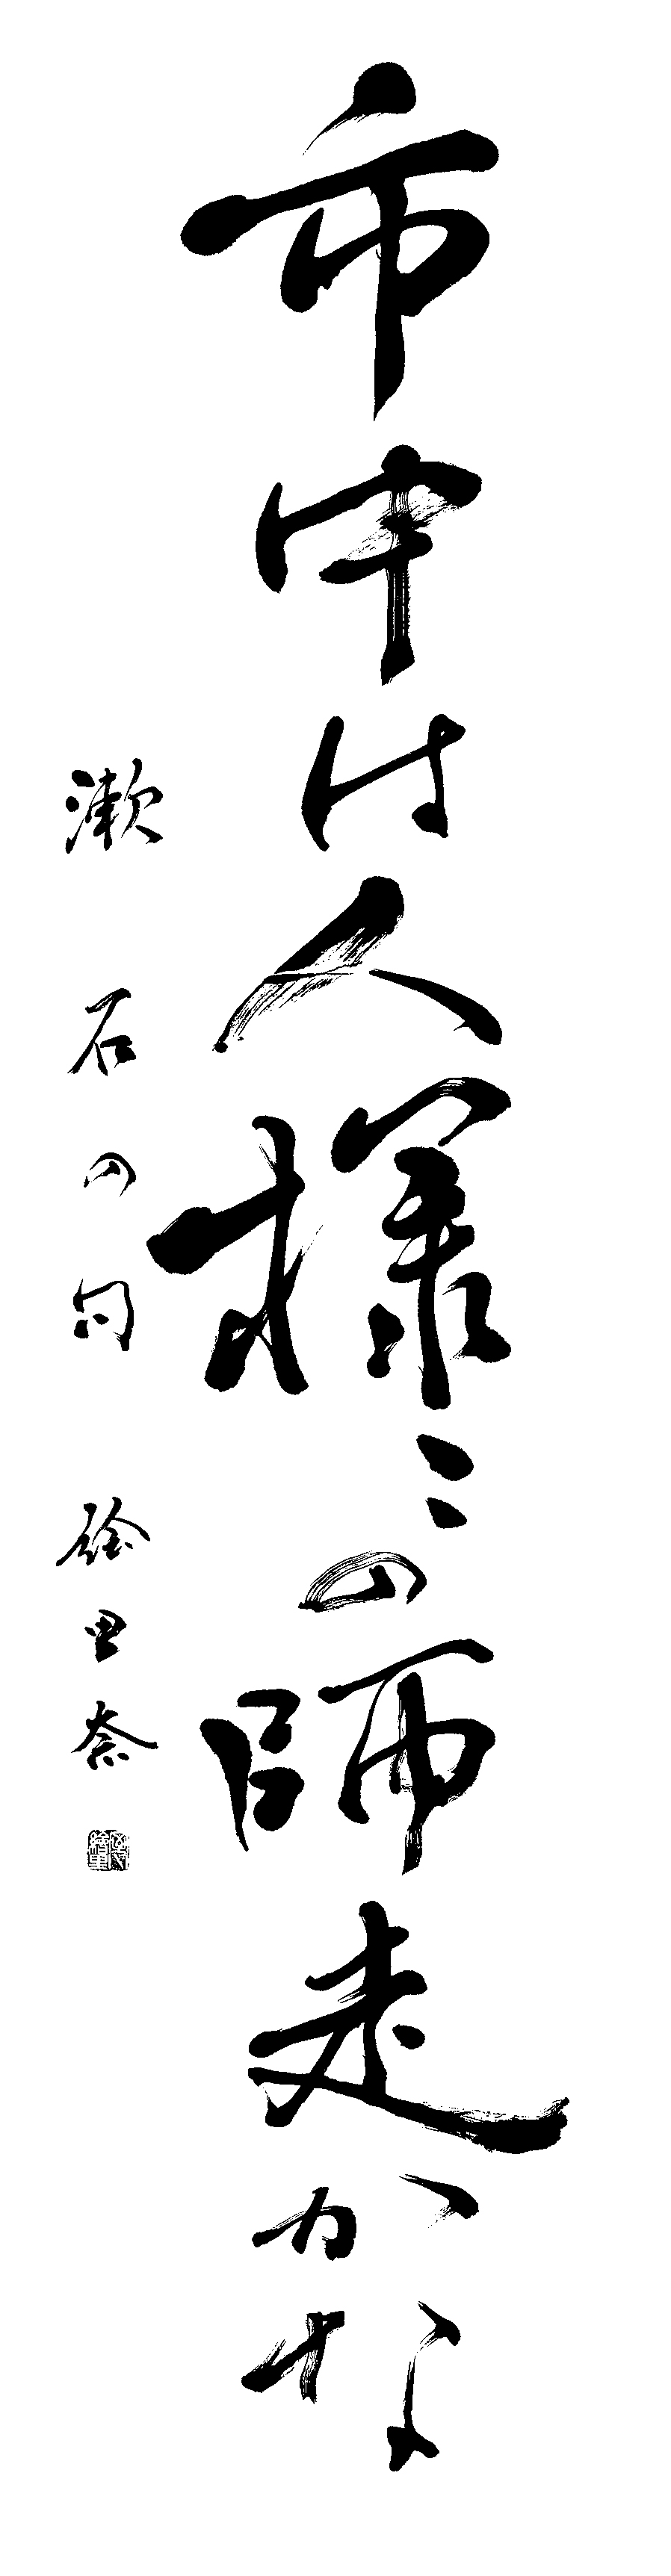 市中は人様々の師走かな
漱石の句 絵里奈